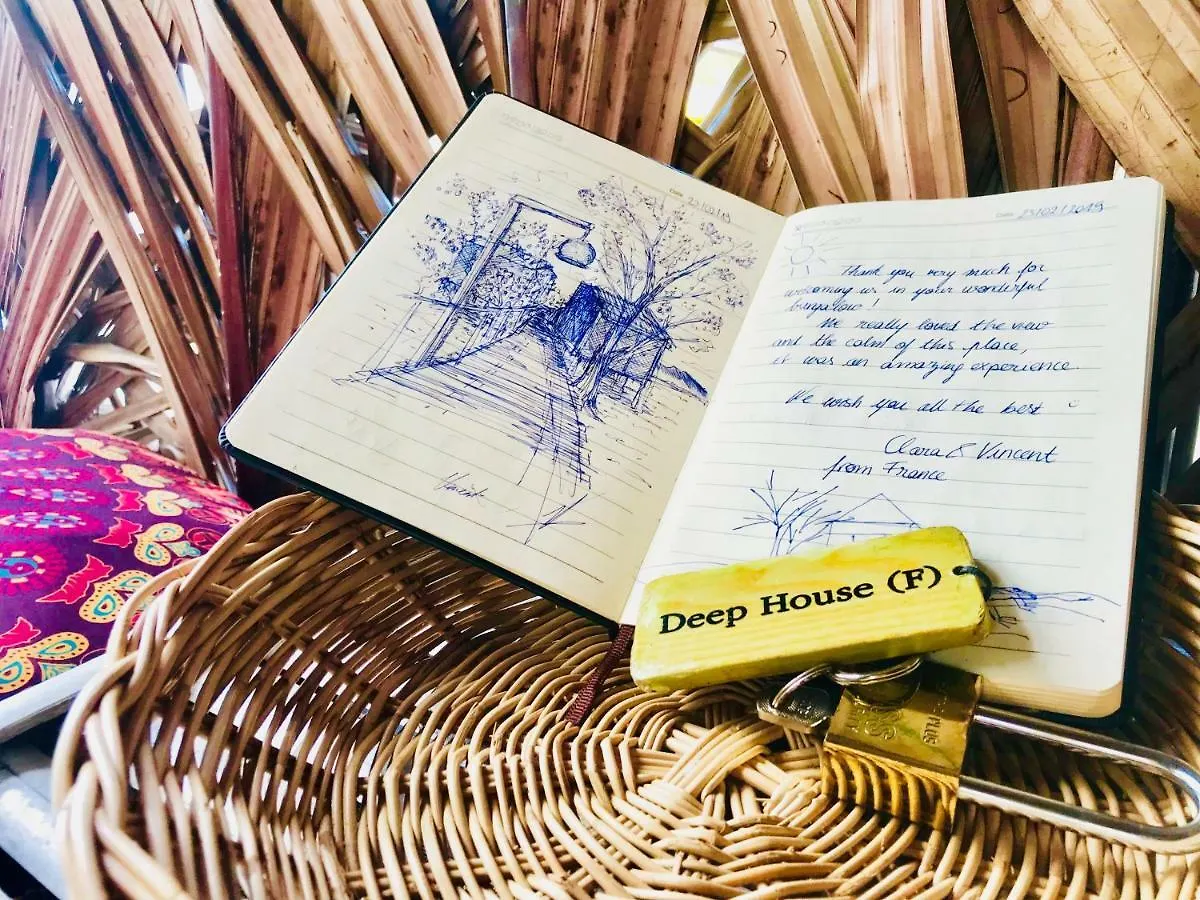 Date
Vincent
Date 23/02/2019
Thank you very much for
welcoming us in your wonderful
bungalow!
We really loved the view
and the calm of this place,
it was an amazing experience.
We wish you all the best
Clara & Vincent
from France
Deep House (F)
PLUS